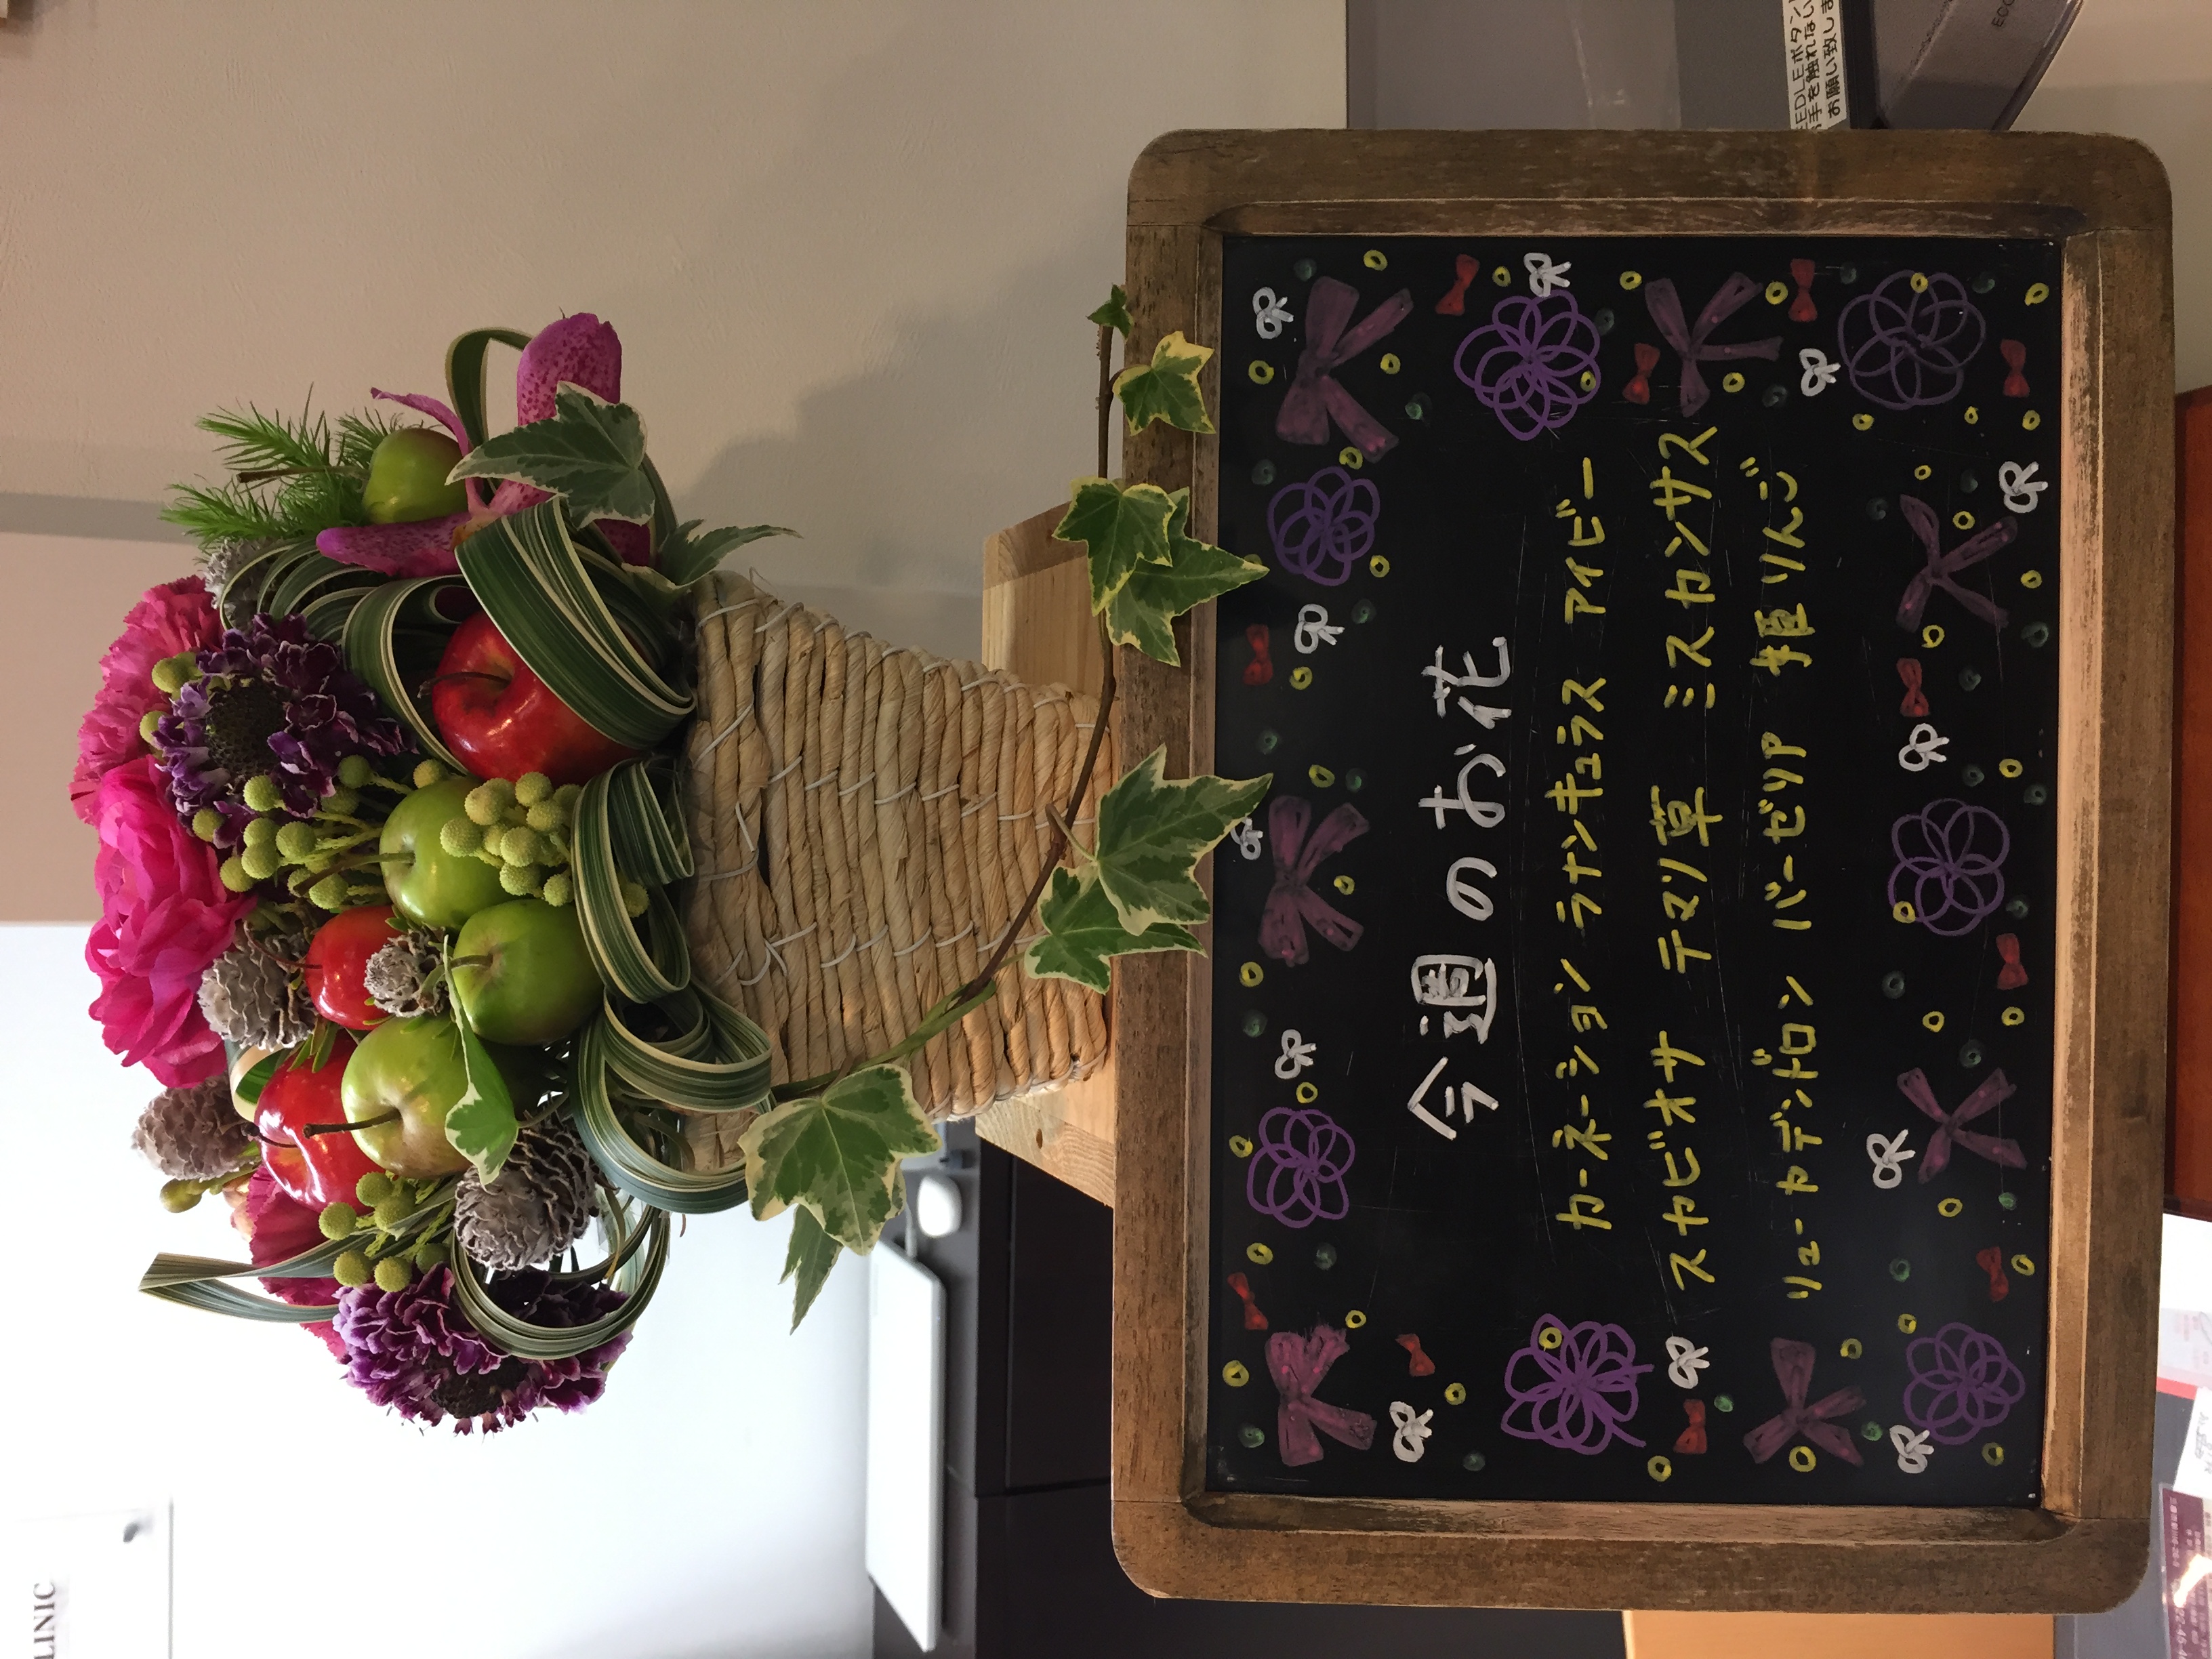 今週のお花
カーネーション ラナンキュラス アイビー
スカビオサ テマリ草 ミスカンサス
リューカデンドロン バーゼリア 姫りんご
EEDLEボタン
手を触れない
お願い致しま
ECO
LINIC